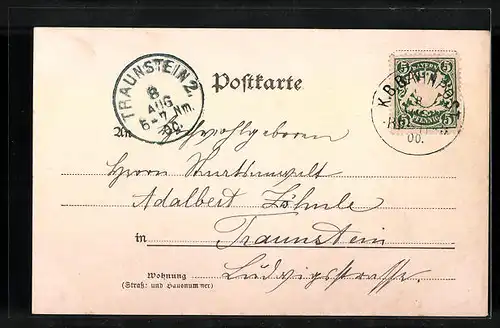 TRAUNSTEIN 2.
8
AUG
6-7 Nm.
00.
Postkarte
BAYERN
5 5
PFENNIG
K.B.BAHN
00.
An Wohlgeboren
Herrn
Adalbert
in Traunstein
Wohnung Ludwigstrasse.
(Straß: und Hausnummer)